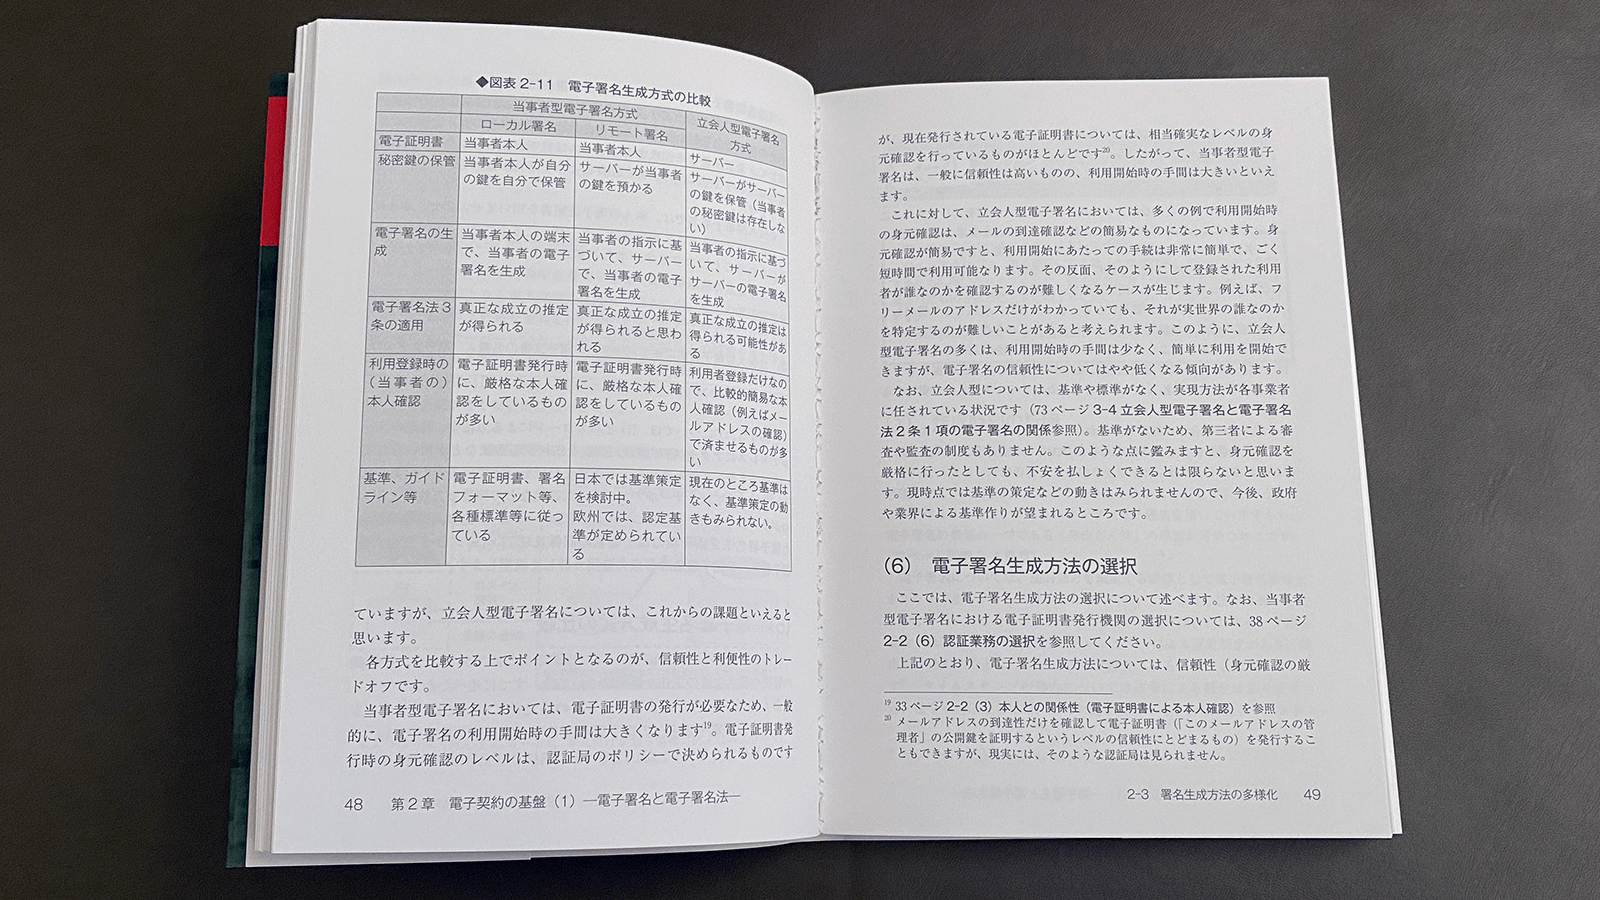 ◆図表 2-11　電子署名生成方式の比較
当事者型電子署名方式
立会人型電子署名
方式
ローカル署名
リモート署名
電子証明書
当事者本人
当事者本人
サーバー
秘密鍵の保管
当事者本人が自分
の鍵を自分で保管
サーバーが当事者
の鍵を預かる
サーバーがサーバー
の鍵を保管（当事者
の秘密鍵は存在しな
い）
電子署名の生
成
当事者本人の端末
で、当事者の電子
署名を生成
当事者の指示に基
づいて、サーバー
で、当事者の電子
署名を生成
当事者の指示に基づ
いて、サーバーが
サーバーの電子署名
を生成
電子署名法 3
条の適用
真正な成立の推定
が得られる
真正な成立の推定
が得られると思わ
れる
真正な成立の推定は
得られる可能性があ
る
利用登録時の
（当事者の）
本人確認
電子証明書発行時
に、厳格な本人確
認をしているもの
が多い
電子証明書発行時
に、厳格な本人確
認をしているもの
が多い
利用者登録だけなの
で、比較的簡易な本
人確認（例えばメー
ルアドレスの確認）
で済ませるものが多
い
基準、ガイド
ライン等
電子証明書、署名
フォーマット等、
各種標準等に従っ
ている
日本では基準策定
を検討中。
欧州では、認定基
準が定められてい
る
現在のところ基準は
なく、基準策定の動
きもみられない。
ていますが、立会人型電子署名については、これからの課題といえると
思います。
各方式を比較する上でポイントとなるのが、信頼性と利便性のトレー
ドオフです。
当事者型電子署名においては、電子証明書の発行が必要なため、一般
的に、電子署名の利用開始時の手間は大きくなります19。電子証明書発
行時の身元確認のレベルは、認証局のポリシーで決められるものです
48　第 2 章　電子契約の基盤（1）―電子署名と電子署名法―
が、現在発行されている電子証明書については、相当確実なレベルの身
元確認を行っているものがほとんどです20。したがって、当事者型電子
署名は、一般に信頼性は高いものの、利用開始時の手間は大きいといえ
ます。
これに対して、立会人型電子署名においては、多くの例で利用開始時
の身元確認は、メールの到達確認などの簡易なものになっています。身
元確認が簡易ですと、利用開始にあたっての手続は非常に簡単で、ごく
短時間で利用可能なります。その反面、そのようにして登録された利用
者が誰なのかを確認するのが難しくなるケースが生じます。例えば、フ
リーメールのアドレスだけがわかっていても、それが実世界の誰なのか
を特定するのが難しいことがあると考えられます。このように、立会人
型電子署名の多くは、利用開始時の手間は少なく、簡単に利用を開始で
きますが、電子署名の信頼性についてはやや低くなる傾向があります。
なお、立会人型については、基準や標準がなく、実現方法が各事業者
に任されている状況です（73 ページ 3-4 立会人型電子署名と電子署名
法 2 条 1 項の電子署名の関係参照）。基準がないため、第三者による審
査や監査の制度もありません。このような点に鑑みますと、身元確認を
厳格に行ったとしても、不安を払しょくできるとは限らないと思いま
す。現時点では基準の策定などの動きはみられませんので、今後、政府
や業界による基準作りが望まれるところです。
（6）　電子署名生成方法の選択
ここでは、電子署名生成方法の選択について述べます。なお、当事者
型電子署名における電子証明書発行機関の選択については、38 ページ
2-2（6）認証業務の選択を参照してください。
上記のとおり、電子署名生成方法については、信頼性（身元確認の厳
19 33 ページ 2-2（3）本人との関係性（電子証明書による本人確認）を参照
20 メールアドレスの到達性だけを確認して電子証明書（「このメールアドレスの管
理者」の公開鍵を証明するというレベルの信頼性にとどまるもの）を発行するこ
ともできますが、現実には、そのような認証局は見られません。
2-3　署名生成方法の多様化　49